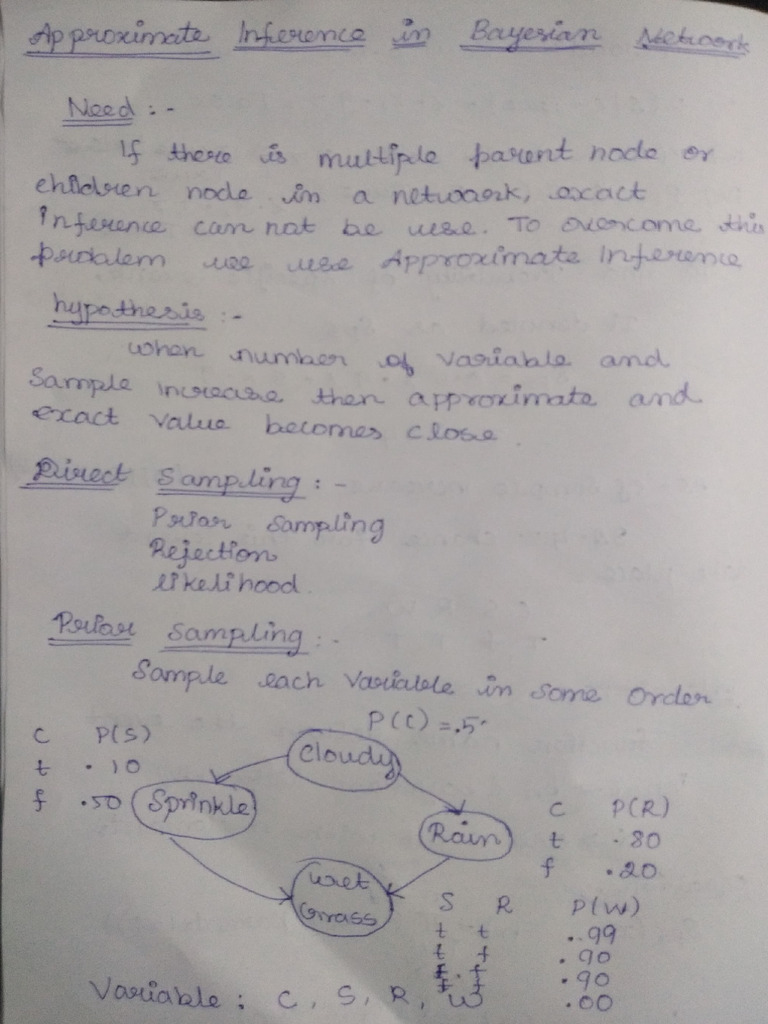 Approximate Inference in Bayesian Network
Need :-
If there is multiple parent node or
children node in a network, exact
Inference can not be use. To overcome this
problem we use Approximate Inference
hypothesis :-
when number of variable and
Sample increase then approximate and
exact value becomes close.
Direct Sampling : -
Prior Sampling
Rejection
likelihood.
Prior Sampling :-
Sample each Variable in Some Order
P(C) = .5
C P(S)
t .10
f .50
Cloudy
Sprinkle
Rain
C P(R)
t .80
f .20
Wet
Grass
S R P(W)
t t .99
t f .90
f .90
f f .00
Variable : C, S, R, W